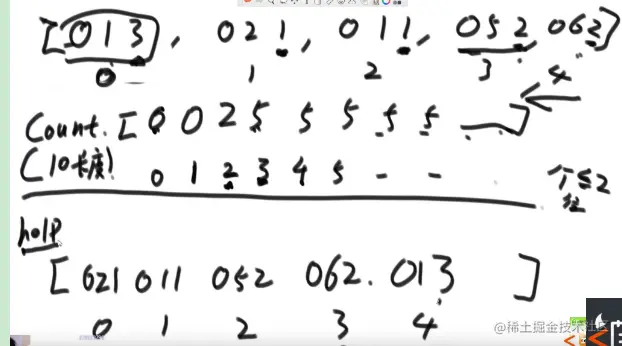 [013, 021, 011, 052, 062]
0 1 2 3 4
Count. [0 0 2 5 5 5 5 5 —]
(10长度) 0 1 2 3 4 5 - -
个≤2
help
[621 011 052 062. 013 ]
0 1 2 3 4
@稀土掘金技术社区